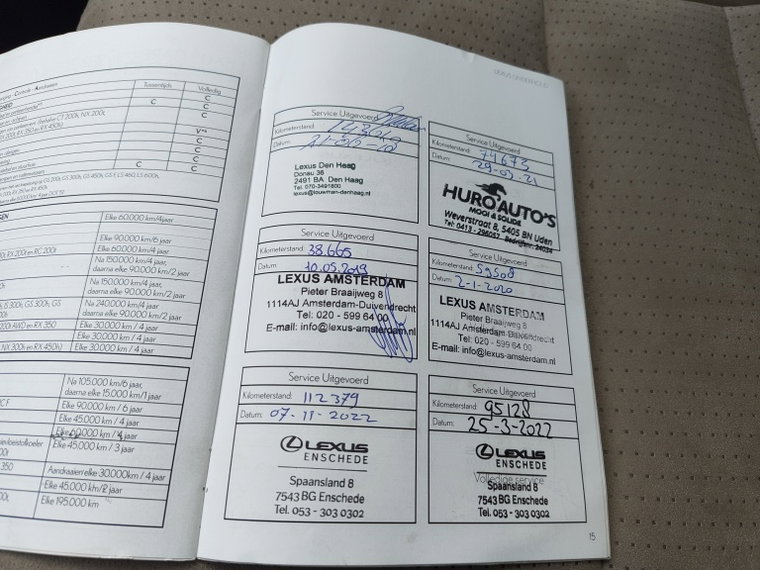 Tussentijds Volledig
C
C C
C
C
C
C
C C
C
Elke 60.000 km/4jaar
Elke 90.000 km/6 jaar
Elke 60.000 km/4 jaar
Na 150.000 km/4 jaar,
daarna elke 90.000 km/2 jaar
Na 150.000 km/4 jaar
daarna elke 90.000km/2 jaar
IS 300h, GS 300h, GS
Na 240.000 km/4 jaar
daarna elke 90.000km/2 jaar
200t AWD en RX 350
Elke 30.000 km / 4 jaar
Elke 30.000 km / 4 jaar
NX 300h en RX 450h)
Elke 30.000 km / 4 jaar
Na 105.000 km/6 jaar,
daarna elke 15.000 km/1 jaar
RC F
Elke 90.000 km / 6 jaar
Elke 45.000 km / 4 jaar
Elke 60.000 km / 4 jaar
Elke 45.000 km / 3 jaar
350
Aandraaien elke 30.000km / 4 jaar
Elke 45.000 km/2 jaar
Elke 195.000 km
LEXUS ONDERHOUD
Service Uitgevoerd
Kilometerstand:
Datum:
Lexus Den Haag
Donau 36
2491 BA Den Haag
Tel. 070-3491800
lexus@louwman-denhaag.nl
Service Uitgevoerd
Kilometerstand: 74673
Datum: 29-03-21
HURO AUTO'S
MOOI & SOLIDE
Weverstraat 8, 5405 BN Uden
Service Uitgevoerd
Kilometerstand: 38.665
Datum: 10.05.2019
LEXUS AMSTERDAM
Pieter Braaijweg 8
1114AJ Amsterdam-Duivendrecht
Tel: 020 - 599 64 00
E-mail: info@lexus-amsterdam.nl
Service Uitgevoerd
Kilometerstand: 59508
Datum: 2-1-2020
LEXUS AMSTERDAM
Pieter Braaijweg 8
1114AJ Amsterdam-Duivendrecht
Tel: 020 - 599 64 00
E-mail: info@lexus-amsterdam.nl
Service Uitgevoerd
Kilometerstand: 112379
Datum: 07-11-2022
LEXUS
ENSCHEDE
Spaansland 8
7543 BG Enschede
Tel. 053 - 303 0302
Service Uitgevoerd
Kilometerstand: 95128
Datum: 25-3-2022
LEXUS
ENSCHEDE
Volledige service
Spaansland 8
7543 BG Enschede
Tel. 053 - 303 0302
15